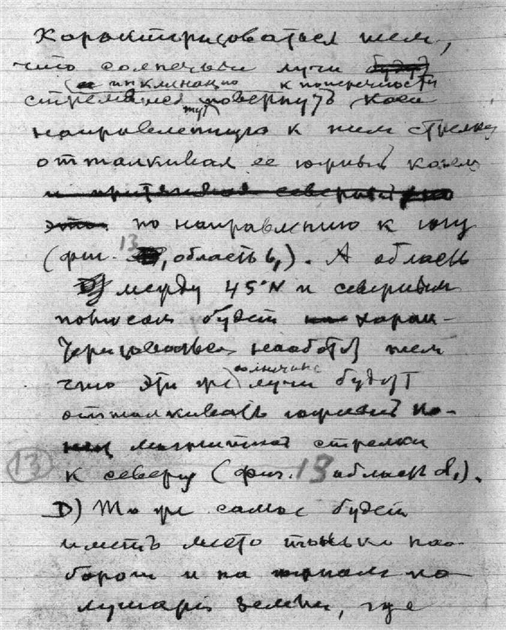 характеризоваться тем,
что солнечные лучи
(а инклинацию к поперечности
стремятся повернуть косо
направленную к ним стрелку
отталкивая ее южный конец
и притягивая северный
это по направлению к югу
(фиг. 13, область b,). А область
D) между 45°N и северным
полюсом будет харак-
теризоваться наоборот тем
что эти же солнечные лучи будут
отталкивать южный ко-
нец магнитной стрелки
13
к северу (фиг. 13 область d,).
D) То же самое будет
иметь место только нао-
борот и на южном по-
лушарии земли, где